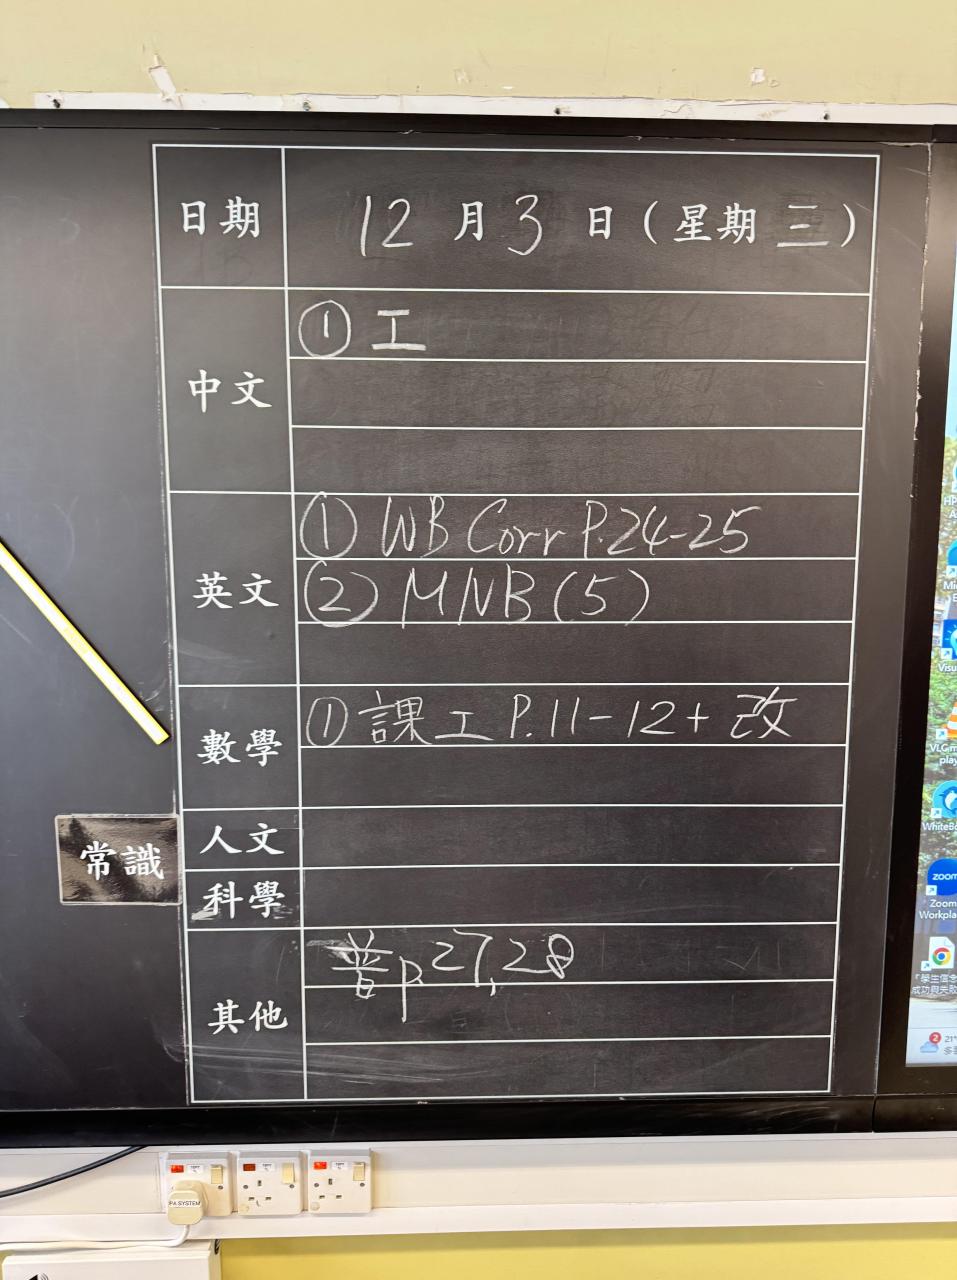 日期 12 月 3 日 (星期 三)
中文 ① 工
英文 ① WB Corr P.24-25
② MNB (5)
數學 ① 課工 P.11-12+ 改
人文
常識
科學
其他 普 p 27, 28
PA SYSTEM
zoom
Zoom
Workpla
WhiteBo
VLC m
play
Visu
2
21°
「學生信念
成功與失敗